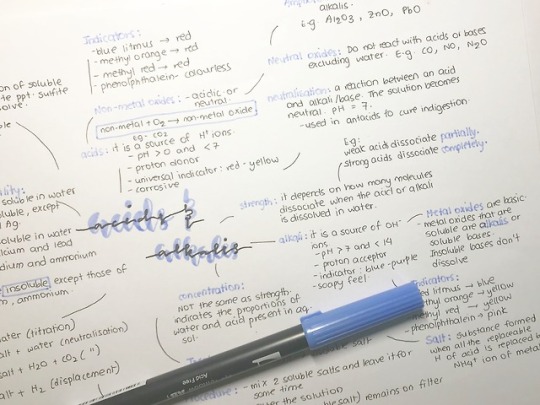 alkalis.
E.g. Al2O3, ZnO, PbO
Indicators:
-blue litmus → red
-methyl orange → red
- methyl red → red
-phenolphthalein- colourless
Neutral oxides: Do not react with acids or bases
excluding water. E.g. CO, NO, N2O
on of soluble
te ppt. sulfite
Non-metal oxides: -acidic or
neutral.
non-metal + O2 → non-metal oxide
eg. CO2
neutralisation: a reaction between an acid
and alkali/base. The solution becomes
neutral. pH = 7.
-used in antacids to cure indigestion.
acids: it is a source of H+ ions.
- pH > 0 and < 7
- proton donor
- universal indicator: red - yellow
- corrosive
E.g:
weak acid dissociate partially.
strong acids dissociate completely.
soluble in water
oluble, except
Ag.
soluble in water
lcium and lead
dium and ammonium
insoluble except those of
, ammonium.
acids &
alkalis
strength: it depends on how many molecules
dissociate when the acid or alkali
is dissolved in water.
alkali: it is a source of OH-
ions
- pH > 7 and < 14
- proton acceptor
- indicator: blue-purple
-soapy feel
Metal oxides are basic
-metal oxides that are
soluble are alkalis or
soluble bases
Insoluble bases don't
dissolve
concentration:
NOT the same as strength.
indicates the proportions of
water and acid present in aq.
sol.
Indicators:
red litmus → blue
methyl orange → yellow
methyl red → yellow
-phenolphthalein → pink
Salt: substance formed
when all the replaceable
H of acid is replaced b
NH4+ ion of metal
water (titration)
alt + water (neutralisation)
alt + H2O + CO2 (")
alt + H2 (displacement)
Acid Free
- mix 2 soluble salts and leave it for
some time
remains on filter